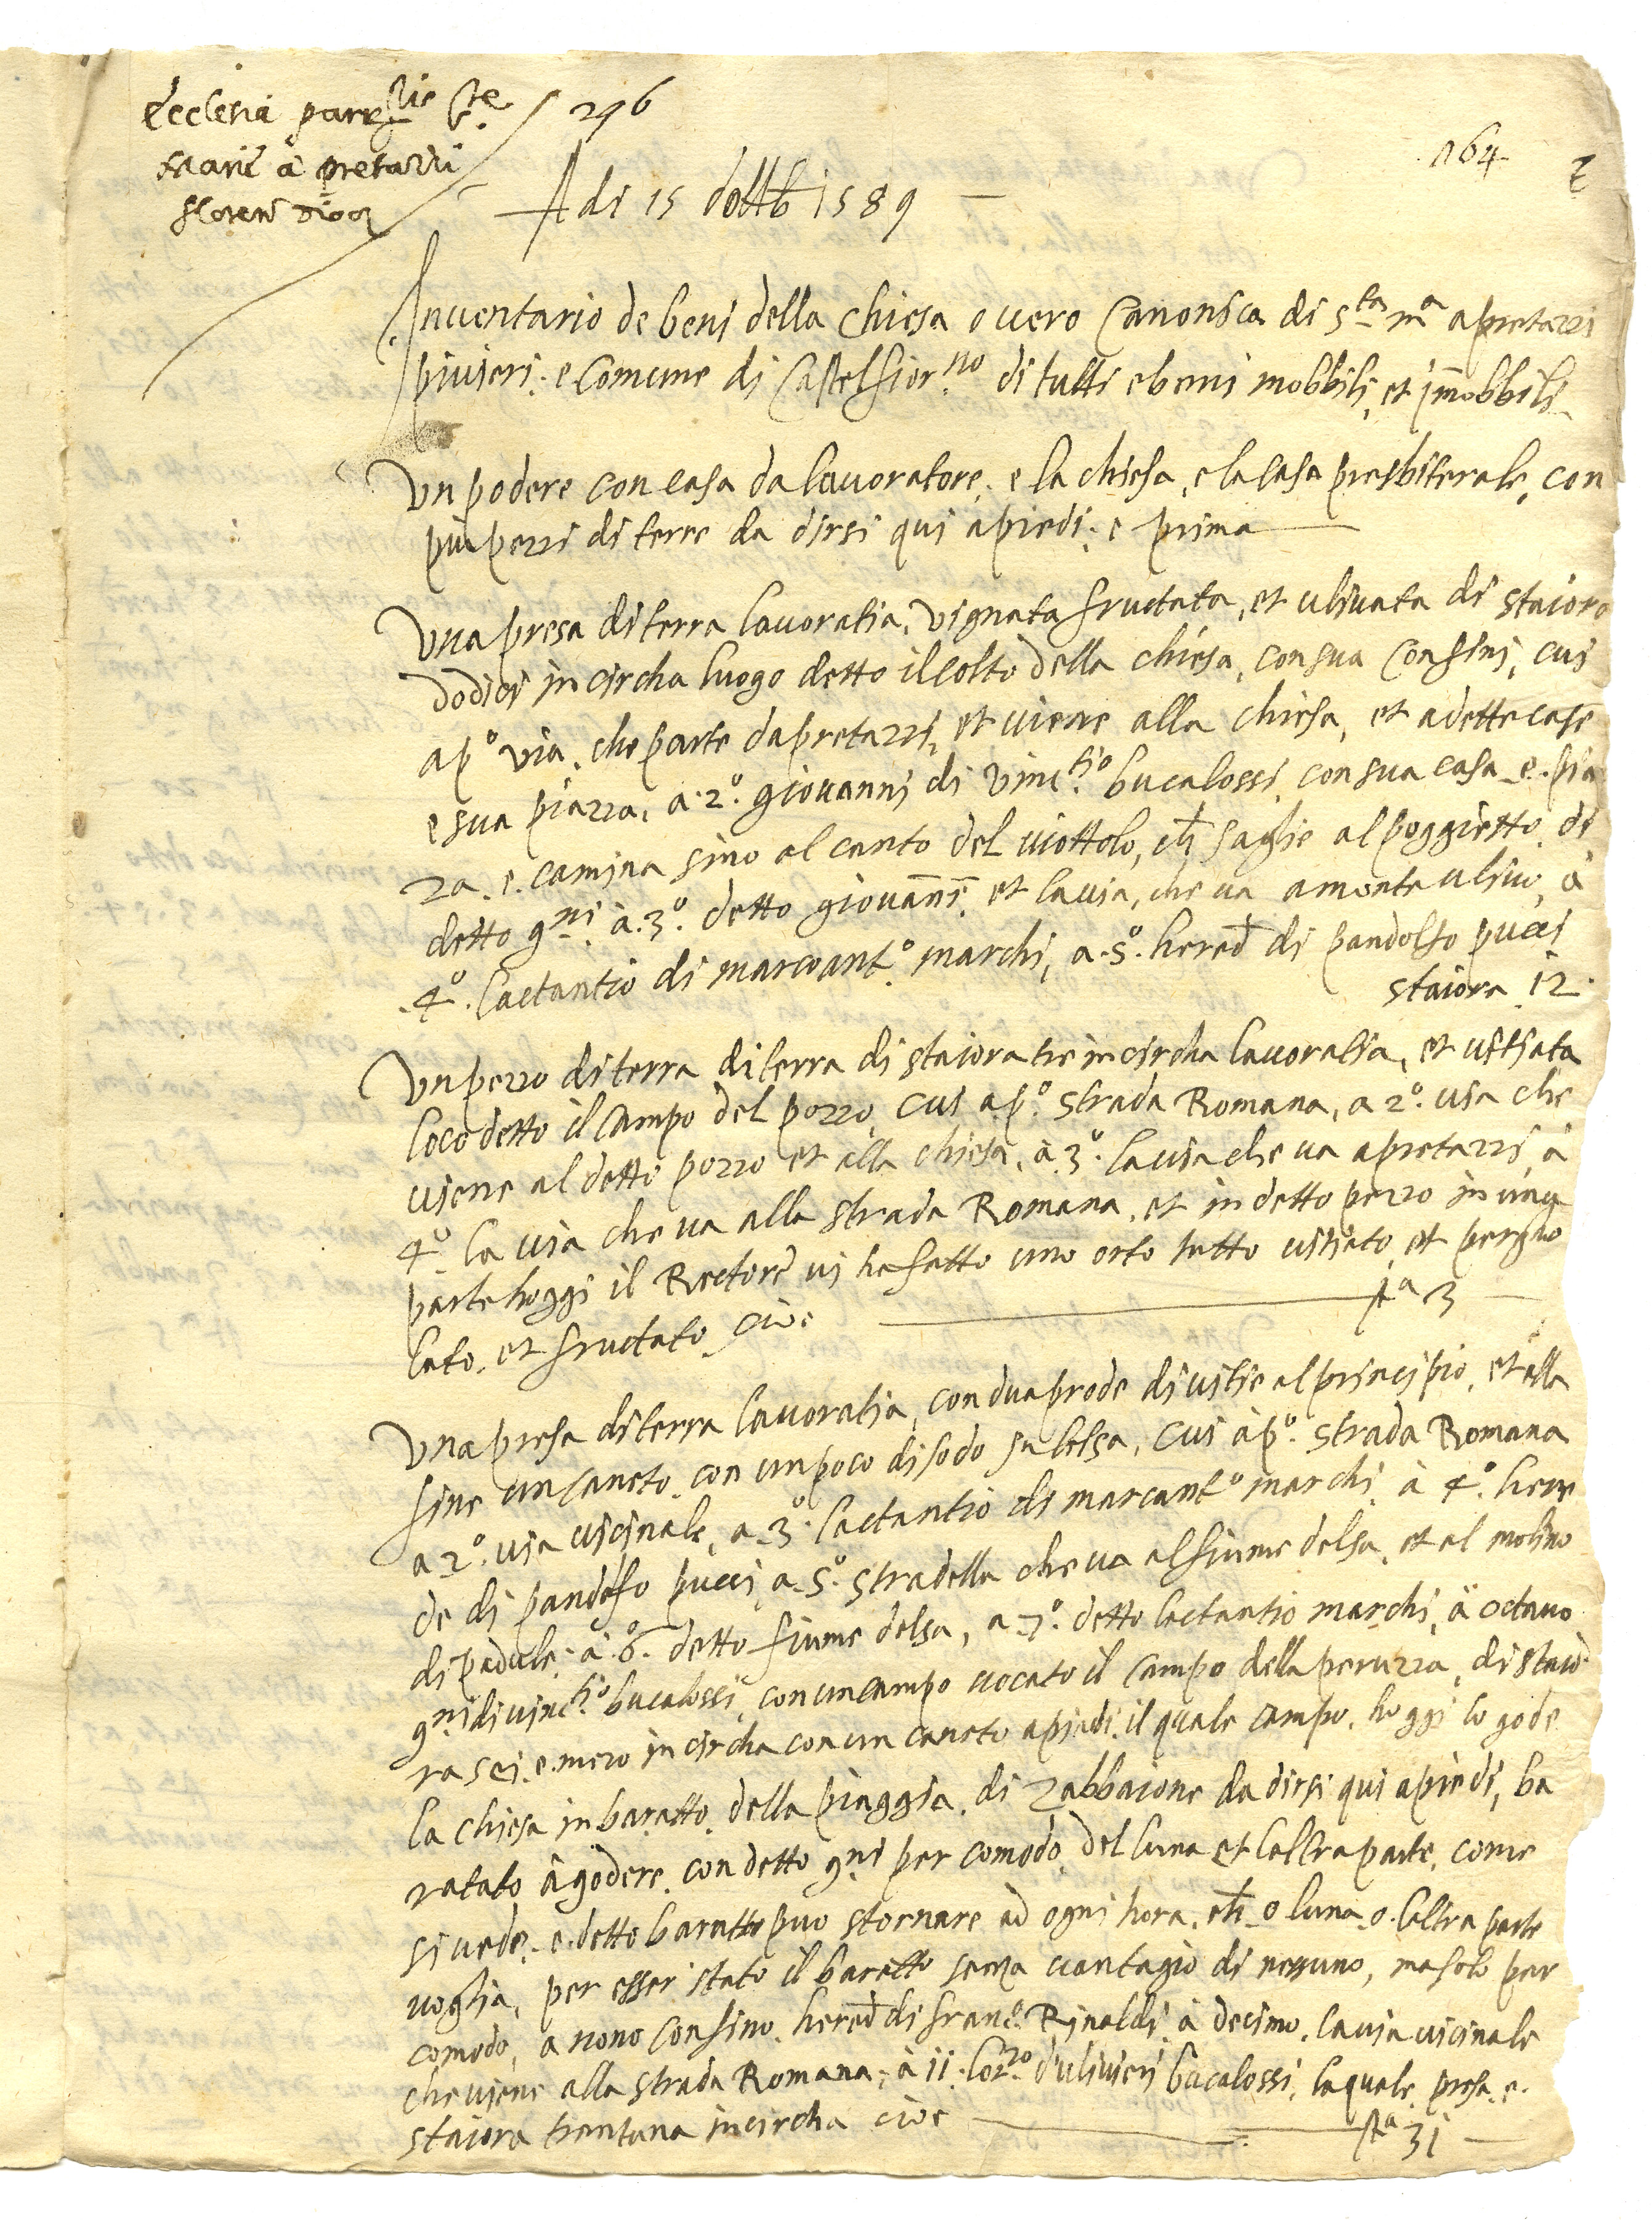 Ecclesia parr.lis S.te
Marie a pretazzi
floren dioc
296
164
Adi 15 dottb 1589
Inventario de beni della chiesa overo Canonica di S.ta m.a a pretazzi
pivieri. e Comune di Castelfior.no di tutti e beni mobbili, et immobbili
Un podere con casa da lavoratore. e la chiesa, e la casa presbiterale, con
più pezzi di terre da dirsi qui a piedi. e prima
Una presa di terra lavoratia, vignata fructata, et ulivata di staiora
dodici in circha luogo detto il colto della chiesa, con sua confini, cui
a p.o via, che parte da pretazzi, et viene alla chiesa, et a dette case
e sua piazza, a 2.o giovanni di Vinc.tio bucalossi, con sua casa e. pia
za. e. camina sino al canto del viottolo, ch saglie al poggietto di
detto g.ni à 3.o detto giovanni. et la via, che va a monte ulivo, à
4.o Lactantio di marcoant.o marchi, a 5.o hered di pandolfo pucci
staiora 12.
Un pezzo di terra di terra di staiora tre in circha lavoratia, et vitiata
loco detto il campo del pozzo, cui a p.o strada Romana, a 2.o via che
viene al detto pozzo et alla chiesa, à 3.o la via che va a pretazzi, à
4.o la via che va alla strada Romana, et in detto pezzo in una
parte hoggi il Rectore vi ha fatto uno orto tutto vitiato, et pergho
lato. et fructato cioe st.a 3
Una presa di terra lavoratia, con dua prode di vitie al principio, et alla
fine un caneto. con un poco di sodo in lelsa, cui à p.o strada Romana
a 2.o via vicinale, a 3.o Lactantio di marcant.o marchi à 4.o here
de di pandolfo pucci, a 5.o stradella che va al fiume delsa, et al molino
di padule. à 6.o detto fiume delsa, a 7.o detto lactantio marchi, à octavo
g.ni di vinc.tio bucalossi, con un campo vocato il campo della peruzza, di staio
ra sei. e. mezo in circha con un caneto a piedi. il quale campo. hoggi lo gode
la chiesa in baratto. della piaggia. di zabbaione da dirsi qui a piedi, ba
ratato à godere. con detto g.ni per comodo del luna et laltra parte. come
si vede. e. detto baratto puo stornare ad ogni hora. ch o luna o. laltra parte
voglia, per esser stato il baratto senza vantagio di nessuno, ma solo per
comodo, a nono confino. hered di franc. Rinaldi. à decimo. la via vicinale
che viene alla strada Romana. à 11. lor.zo d'ulivieri bucalossi, la quale presa. e.
staiora trentuna in circha cioe st.a 31